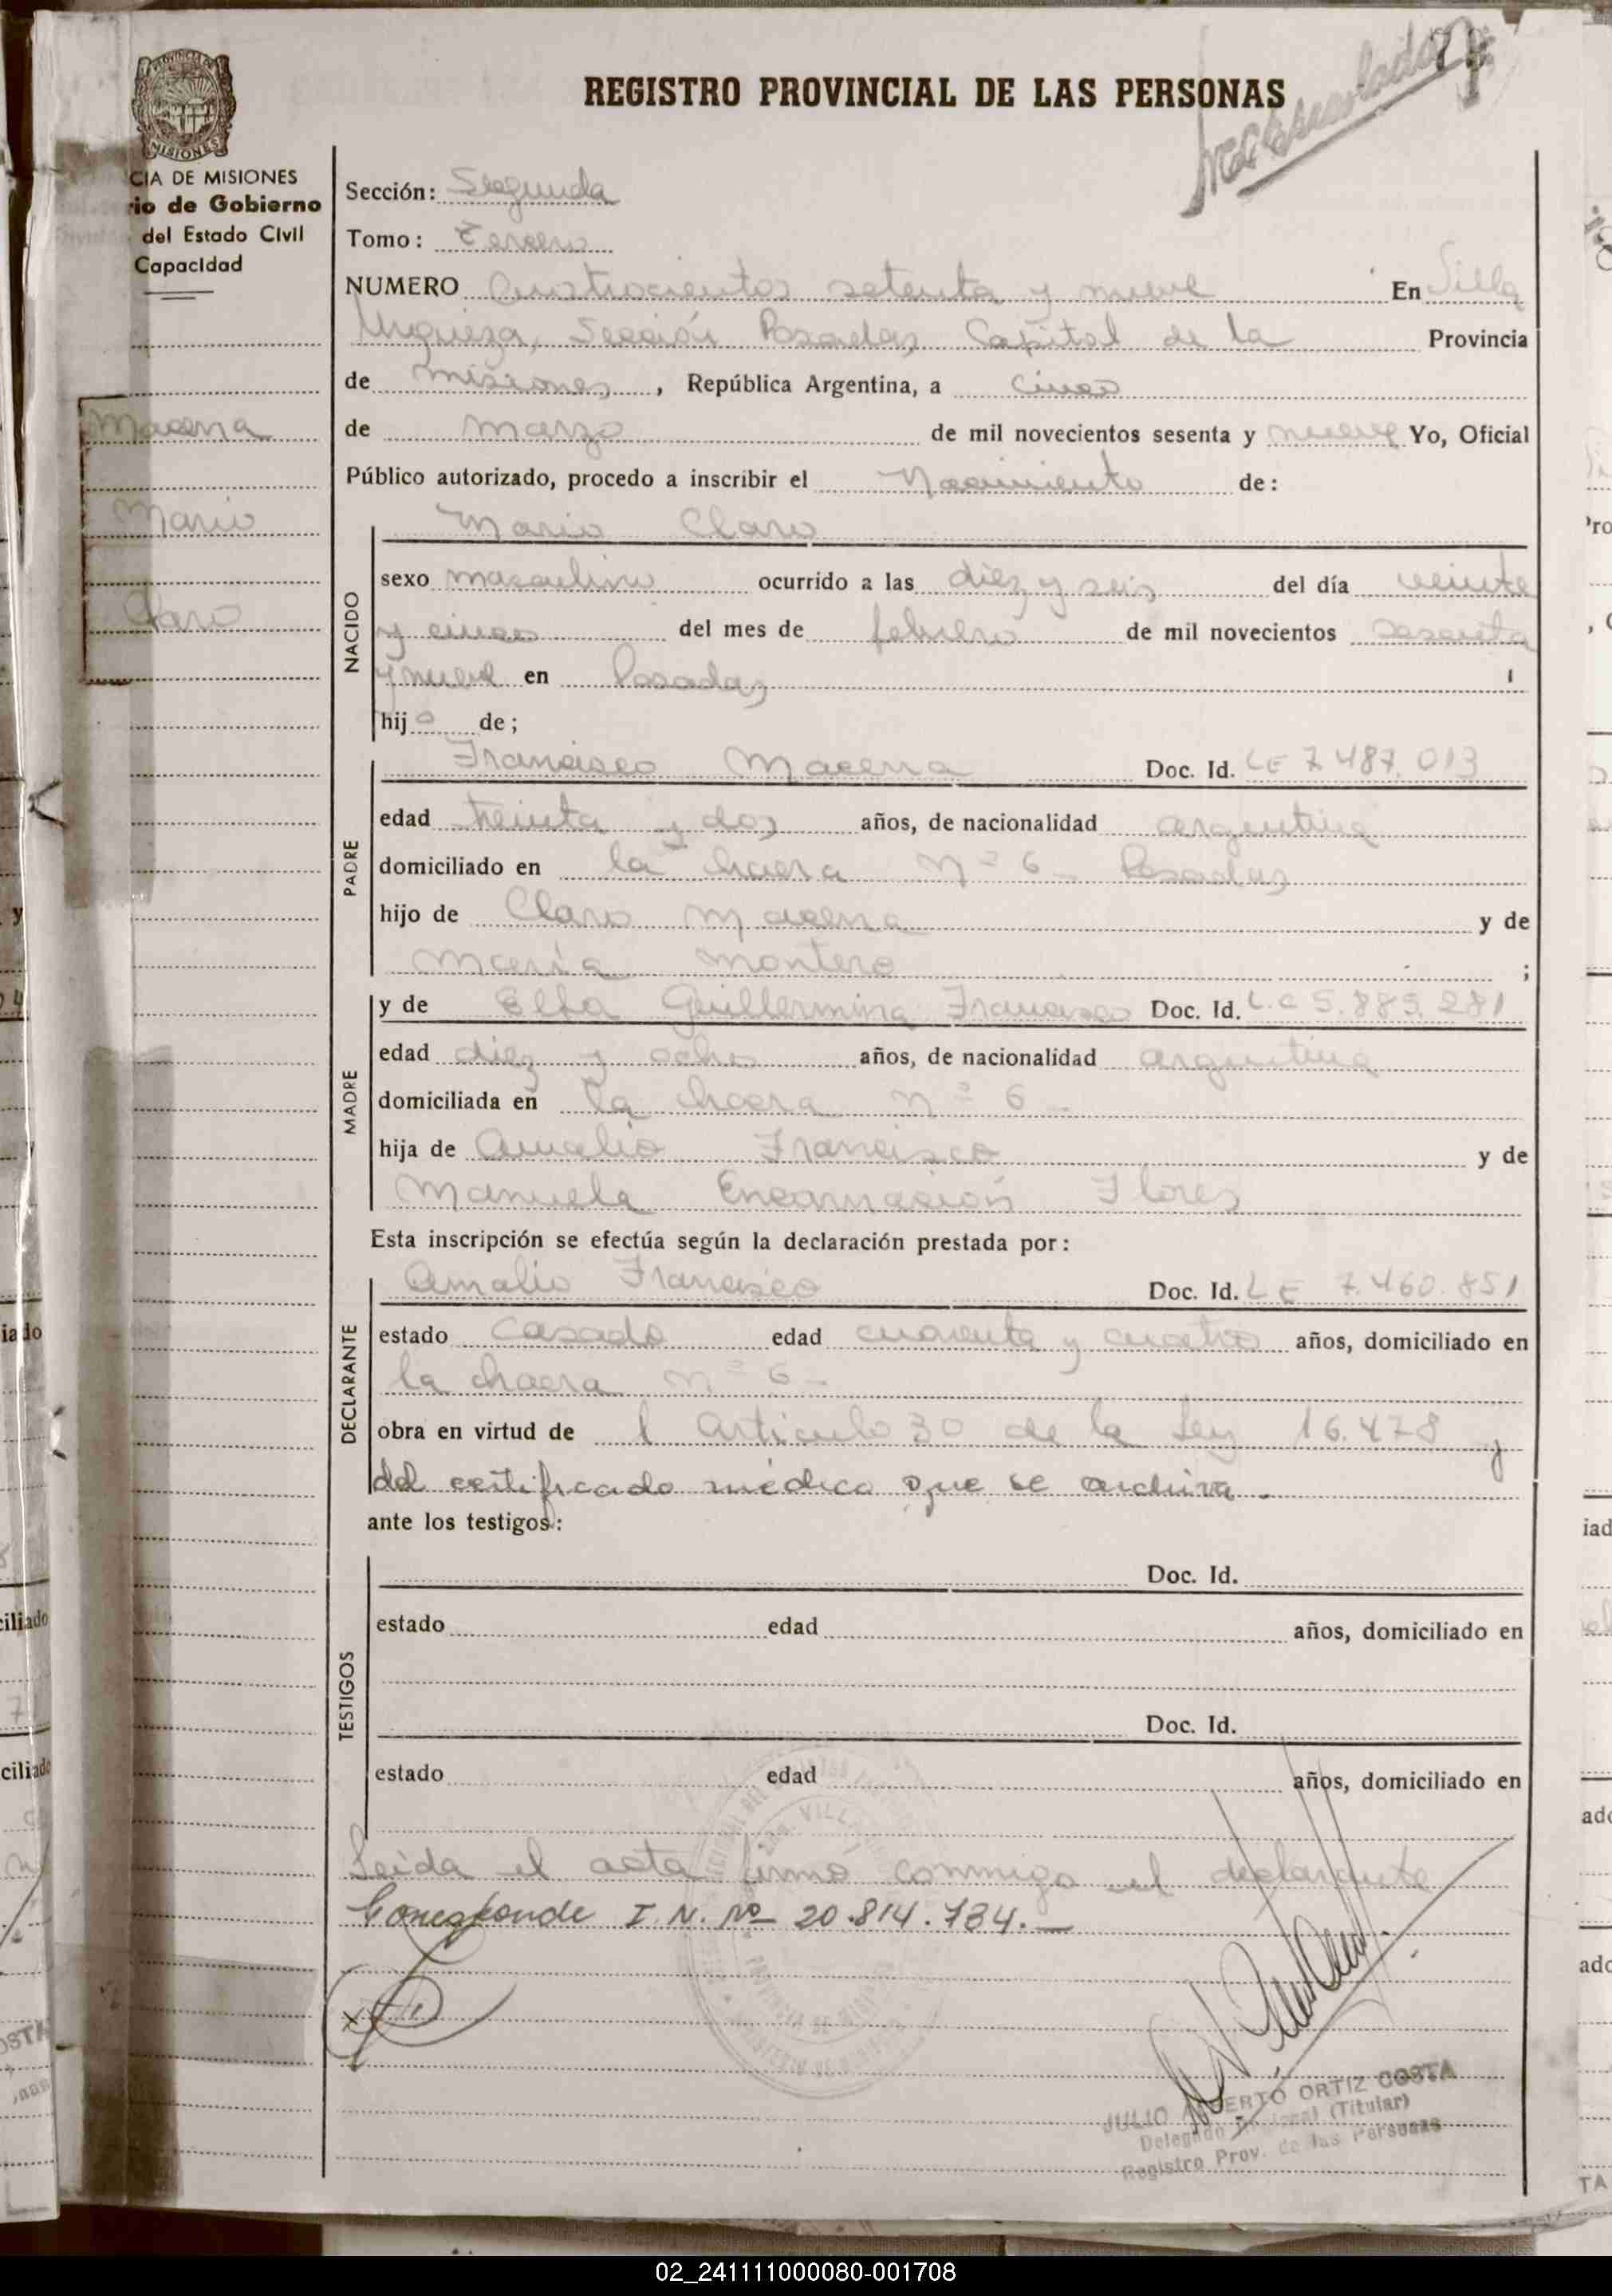 Matriculado
REGISTRO PROVINCIAL DE LAS PERSONAS
MISIONES
CIA DE MISIONES
rio de Gobierno
del Estado Civil
Capacidad
Macena
Mario
Claro
Sección: Segunda
Tomo: Tercero
NUMERO Cuatrocientos setenta y nueve En Villa
Urquiza, Sección Posadas, Capital de la Provincia
de Misiones, República Argentina, a cinco
de marzo de mil novecientos sesenta y nueve Yo, Oficial
Público autorizado, procedo a inscribir el Nacimiento de:
NACIDO
Mario Claro
sexo masculino ocurrido a las diez y seis del día veinte
y cinco del mes de febrero de mil novecientos sesenta
y nueve en Posadas
hijo de;
PADRE
Francisco Macena Doc. Id. LE 7.487.013
edad treinta y dos años, de nacionalidad argentina
domiciliado en la chacra Nº 6 - Posadas
hijo de Claro Macena y de
María Montero ;
MADRE
y de Elba Guillermina Francisco Doc. Id. L.C 5.885.281
edad diez y ocho años, de nacionalidad argentina
domiciliada en la chacra nº 6 -
hija de Amalio Francisco y de
Manuela Encarnación Flores
Esta inscripción se efectúa según la declaración prestada por:
DECLARANTE
Amalio Francisco Doc. Id. LE 7.460.851
estado casado edad cuarenta y cuatro años, domiciliado en
la chacra nº 6 -
obra en virtud de l Artículo 30 de la Ley 16.478 y
del certificado médico que se archiva.
ante los testigos:
TESTIGOS
Doc. Id.
estado edad años, domiciliado en
Doc. Id.
estado edad años, domiciliado en
Leída el acta firma conmigo el declarante
Corresponde I. N. Nº 20.814.734.—
JULIO ALBERTO ORTIZ COSTA
Delegado (Titular)
Registro Prov. de las Personas
02_241111000080-001708